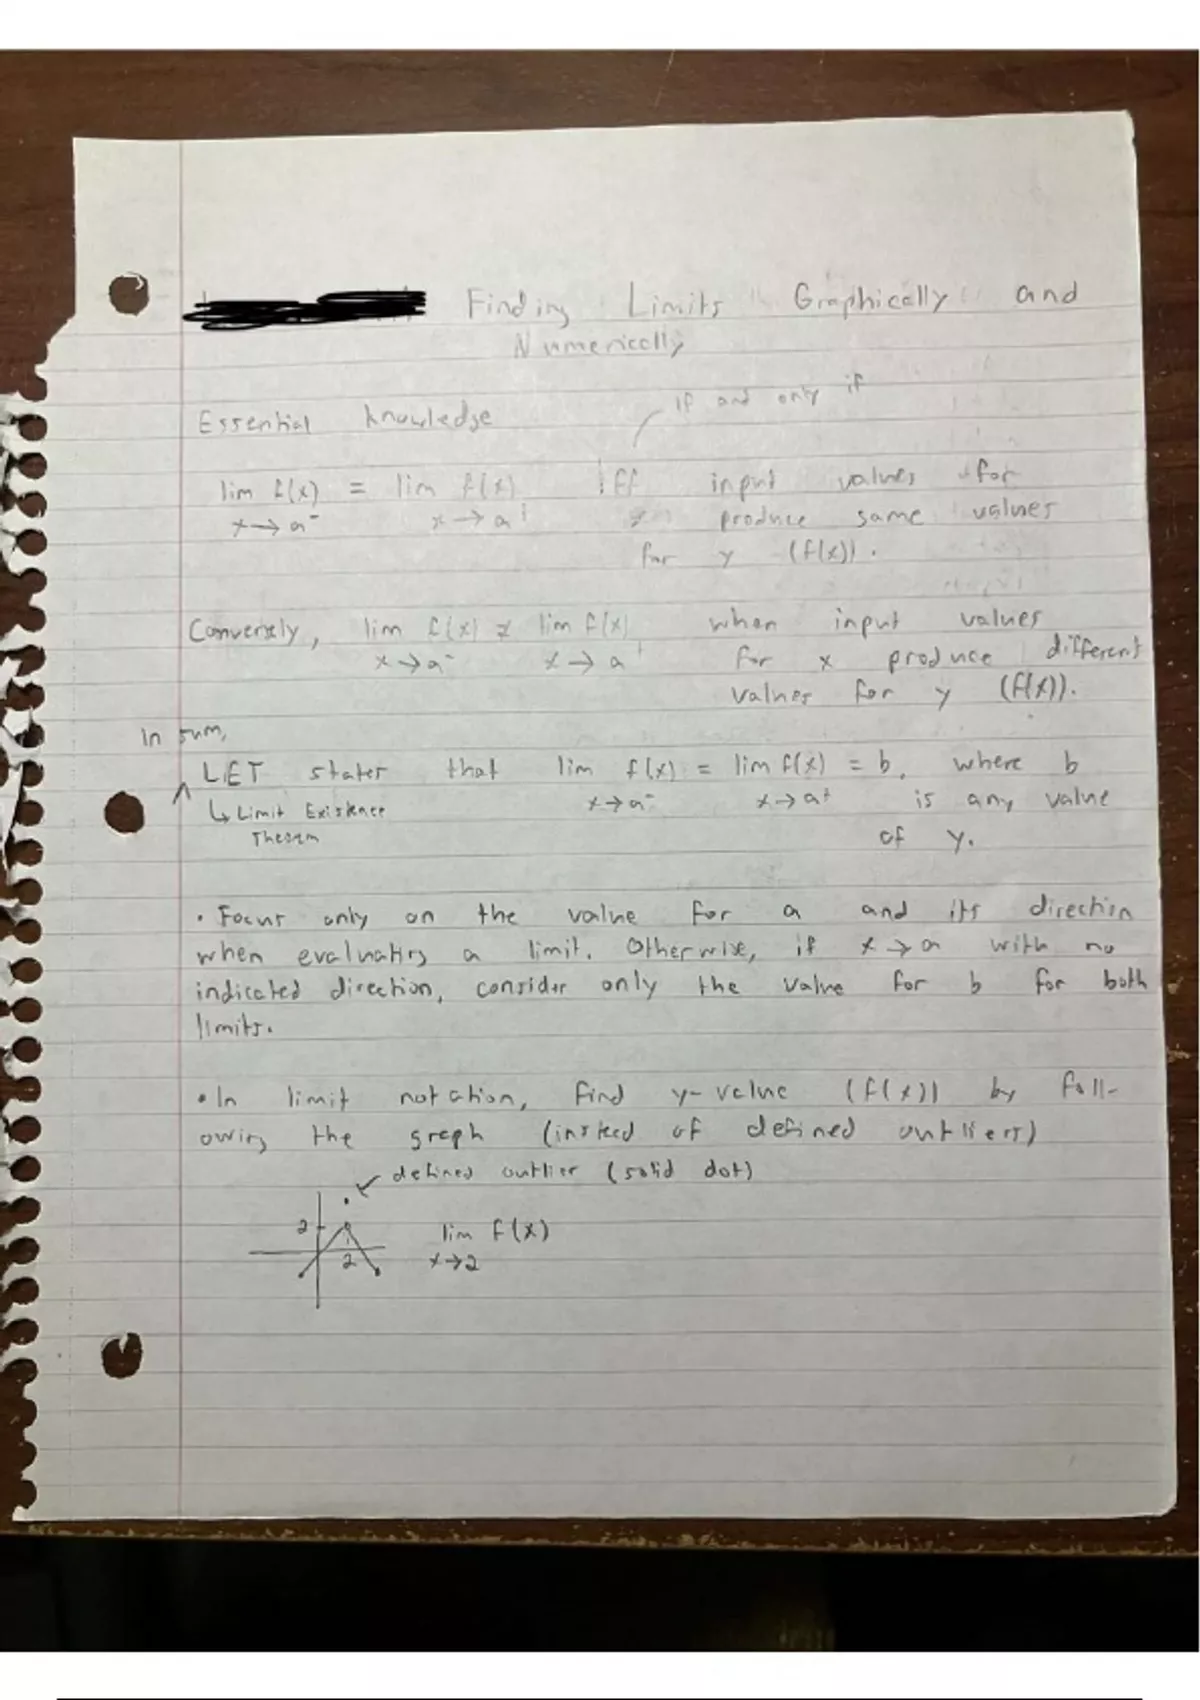 Finding Limits Graphically and
Numerically
Essential knowledge
if and only if
lim f(x) = lim f(x) iff input values for
x→a⁻ x→a⁺ x produce same values
for y (f(x)).
Conversely, lim f(x) ≠ lim f(x) when input values
x→a⁻ x→a⁺ for x produce different
values for y (f(x)).
In sum,
LET states that lim f(x) = lim f(x) = b, where b
x→a⁻ x→a⁺ is any value
↳ Limit Existence
Theorem
of y.
• Focus only on the value for a and its direction
when evaluating a limit. Otherwise, if x→a with no
indicated direction, consider only the value for b for both
limits.
• In limit notation, find y-value (f(x)) by foll-
owing the graph (instead of defined outliers)
defined outlier (solid dot)
2 lim f(x)
2 x→2